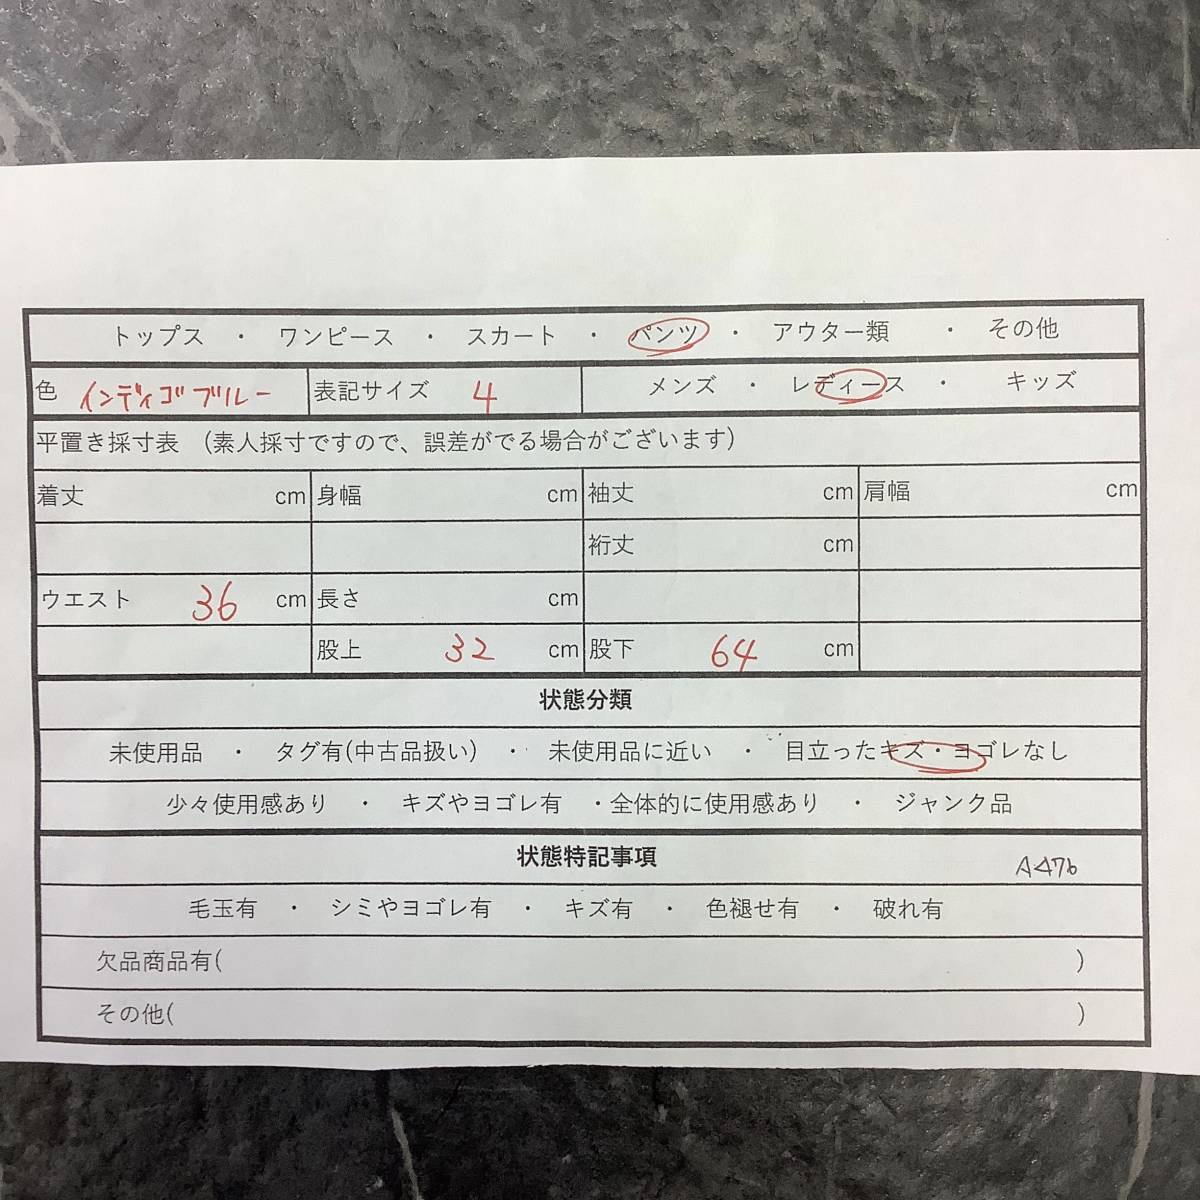 トップス ・ ワンピース ・ スカート ・ パンツ ・ アウター類 ・ その他
色 インディゴブルー 表記サイズ 4 メンズ ・ レディース ・ キッズ
平置き採寸表 （素人採寸ですので、誤差がでる場合がございます）
着丈 cm 身幅 cm 袖丈 cm 肩幅 cm
裄丈 cm
ウエスト 36 cm 長さ cm
股上 32 cm 股下 64 cm
状態分類
未使用品 ・ タグ有(中古品扱い) ・ 未使用品に近い ・ 目立ったキズ・ヨゴレなし
少々使用感あり ・ キズやヨゴレ有 ・全体的に使用感あり ・ ジャンク品
状態特記事項 A476
毛玉有 ・ シミやヨゴレ有 ・ キズ有 ・ 色褪せ有 ・ 破れ有
欠品商品有( )
その他( )